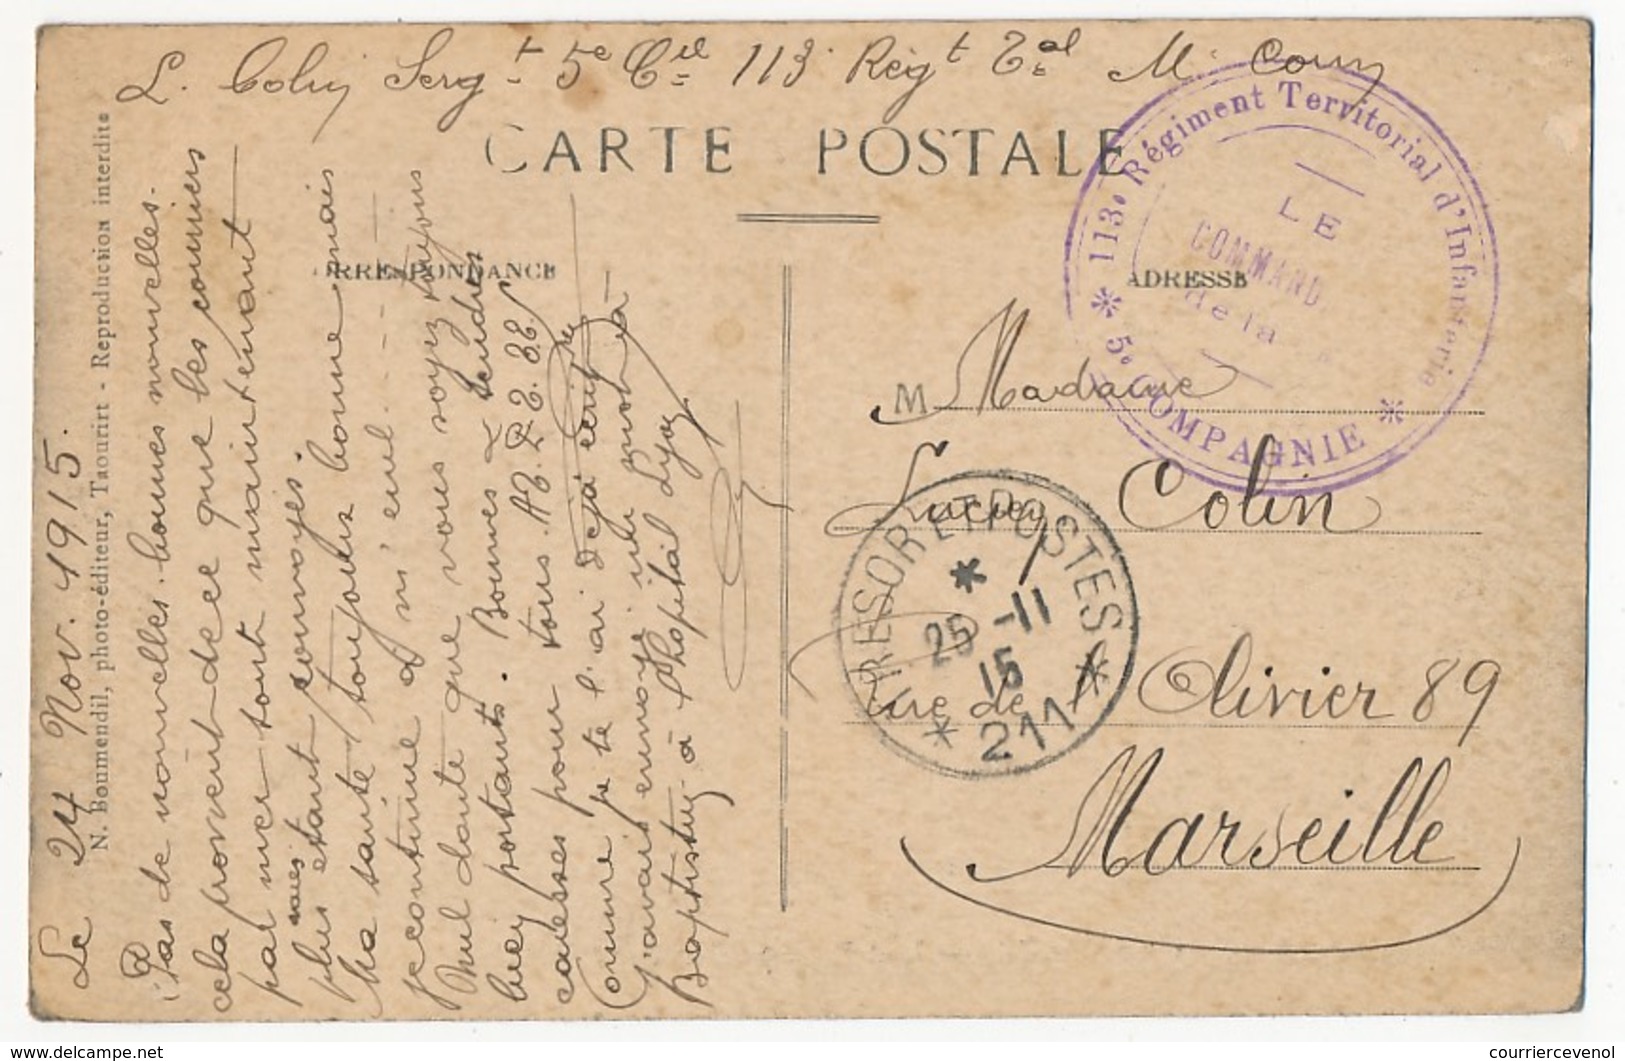 L. Colin Sergt 5e Cie 113 Régt Tal M
CARTE POSTALE
RRESPONDANCE
ADRESSE
113e Régiment Territorial d'Infanterie
* 5e COMPAGNIE *
LE
COMMAND.
de la
M Madame
Lucien Colin
TRESOR ET POSTES
*
25 -11
15
* 211 *
rue de l'Olivier 89
Marseille
Le 24 Nov. 1915.
N. Boumendil, photo-éditeur, Taourirt - Reproduction interdite
Pas de nouvelles. bonnes nouvelles.
cela provient de ce que les courriers
par mer sont maintenant
plus étant convoyés.
Ma santé toujours bonne mais
je continue à m'
Nul doute que vous soyez toujours
bien portants. Bonnes & tendres
caresses pour tous.
Comme je te l'ai déjà écrit
J'avais envoyé un mot à
à l'hopital